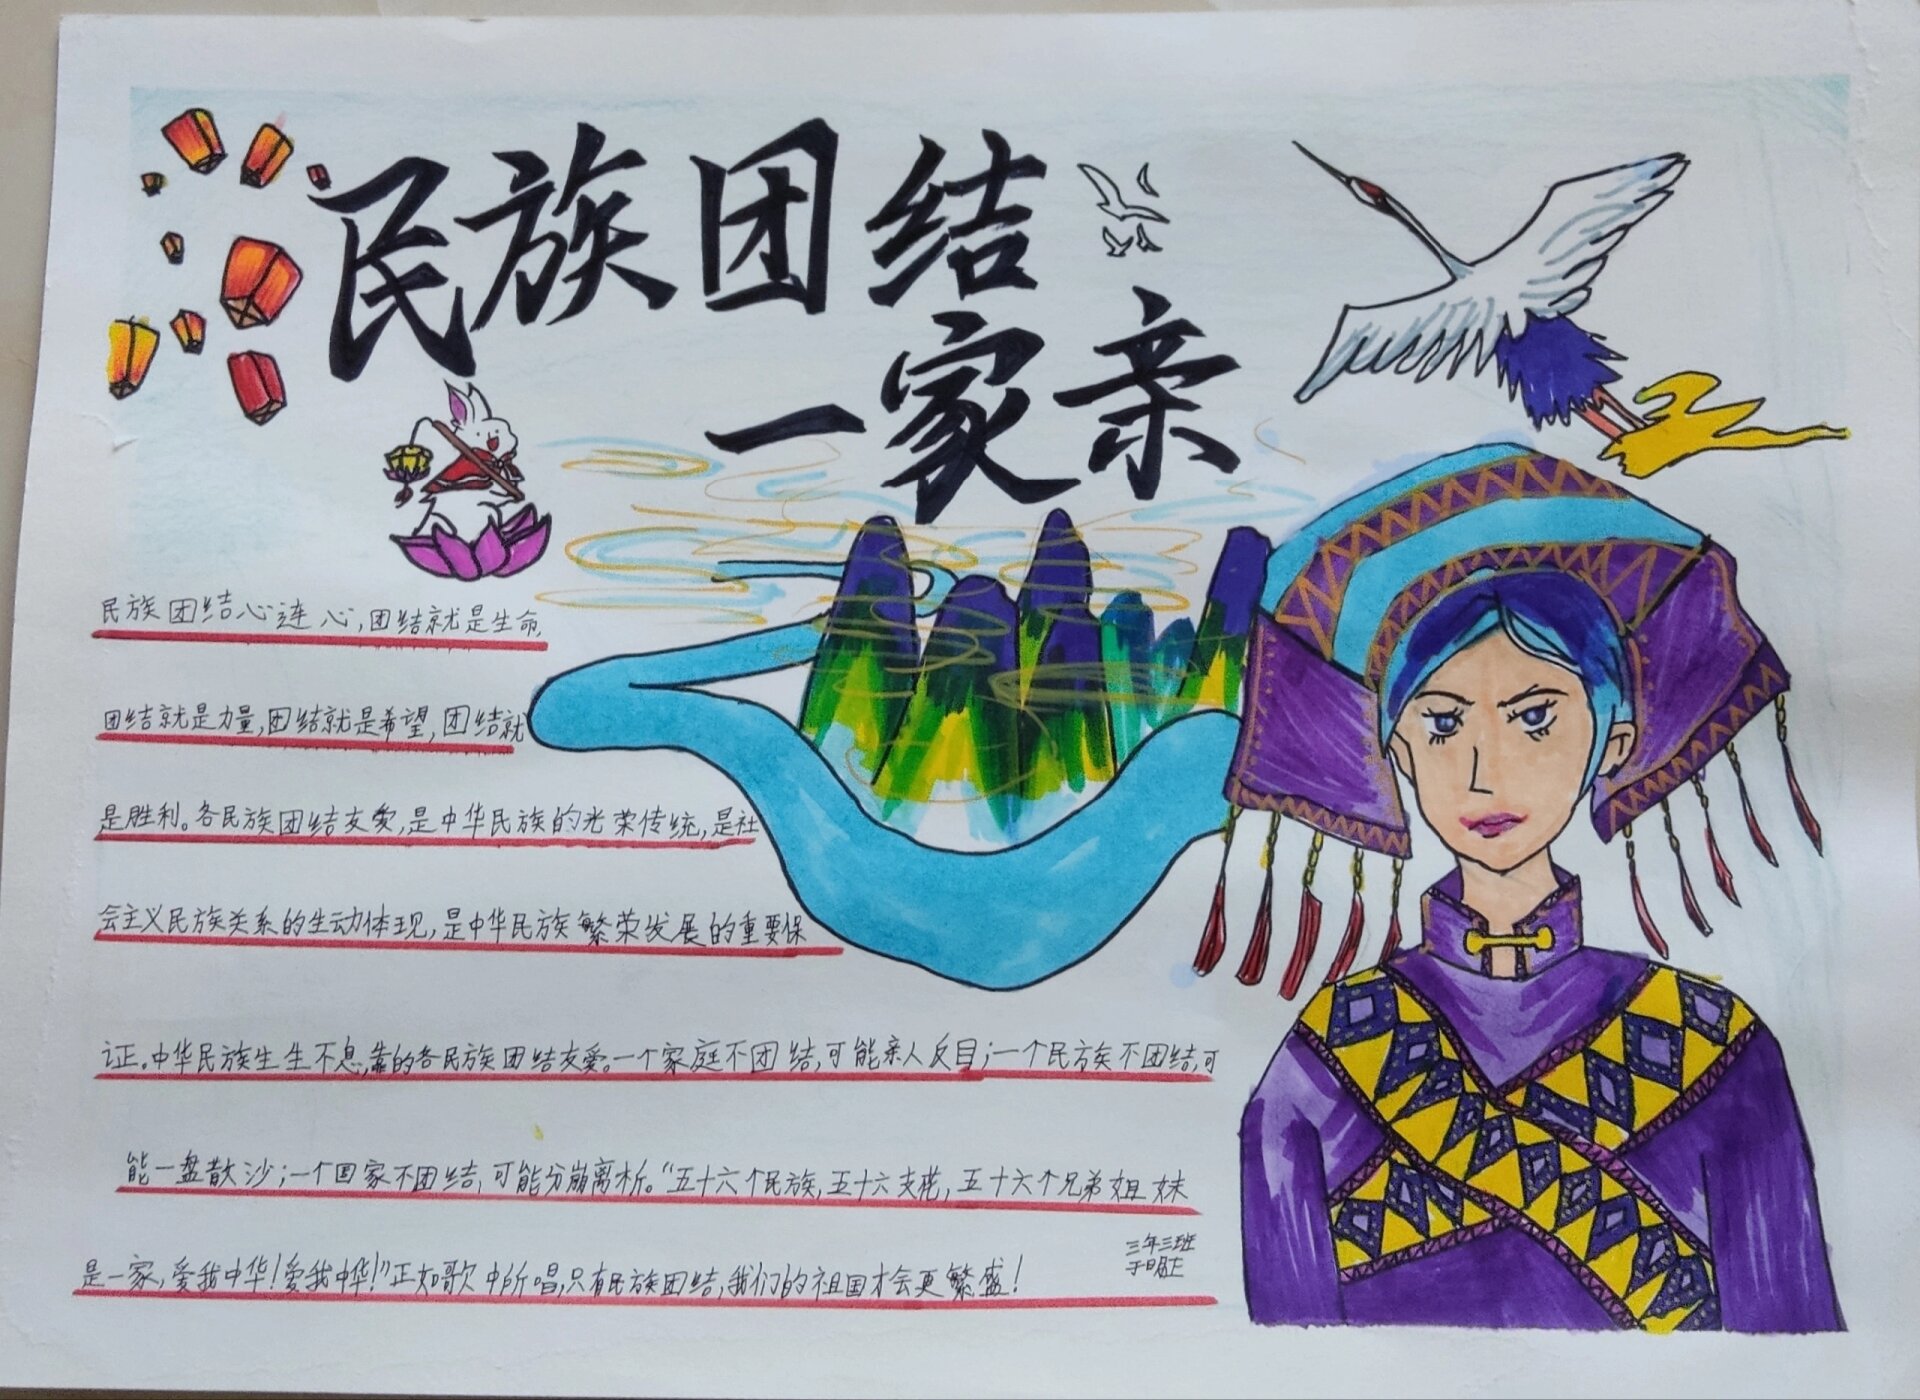 民族团结
一家亲
民族团结心连心,团结就是生命,
团结就是力量,团结就是希望,团结就
是胜利。各民族团结友爱,是中华民族的光荣传统,是社
会主义民族关系的生动体现,是中华民族繁荣发展的重要保
证。中华民族生生不息,靠的各民族团结友爱。一个家庭不团结,可能亲人反目;一个民族不团结,可
能一盘散沙;一个国家不团结,可能分崩离析。“五十六个民族,五十六支花,五十六个兄弟姐妹
是一家,爱我中华!爱我中华!”正如歌中所唱,只有民族团结,我们的祖国才会更繁盛!
三年三班